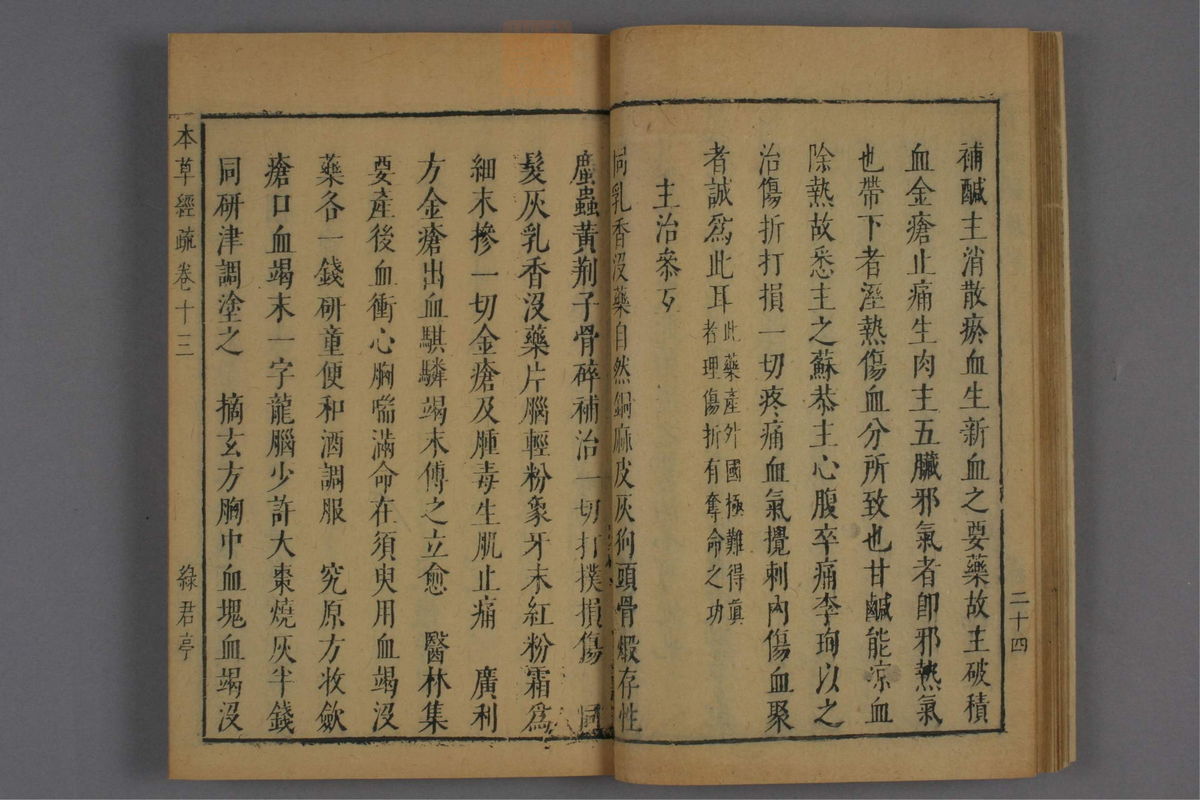 補鹹主消散瘀血生新血之要藥故主破積
血金瘡止痛生肉主五臟邪氣者卽邪熱氣
也帶下者溼熱傷血分所致也甘鹹能凉血
除熱故悉主之蘇恭主心腹卒痛李珣以之
治傷折打損一切疼痛血氣攪刺內傷血聚
者誠爲此耳此藥產外國極難得眞
者理傷折有奪命之功
主治參互
同乳香沒藥自然銅麻皮灰狗頭骨煅存性
䗪蟲黃荆子骨碎補治一切打撲損傷 同
髮灰乳香沒藥片腦輕粉象牙末紅粉霜爲
細末摻一切金瘡及腫毒生肌止痛 廣利
方金瘡出血騏驎竭末傅之立愈 醫林集
要產後血衝心胸喘滿命在須臾用血竭沒
藥各一錢研童便和酒調服 究原方收歛
瘡口血竭末一字龍腦少許大棗燒灰半錢
同研津調塗之 摘玄方胸中血塊血竭沒
二十四
本草經疏卷十三
綠君亭